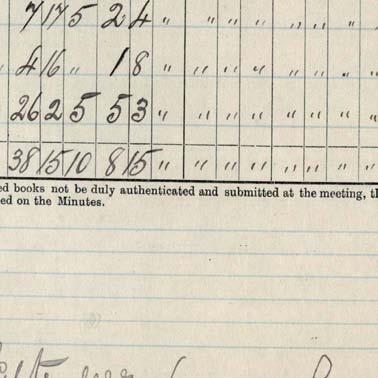 7 17 5 2 4 " " " " " " " "
" 4 16 " 1 8 " " " " " " " "
26 2 5 5 3 " " " " " " " "
38 15 10 8 15 " " " " " " " "
ed books not be duly authenticated and submitted at the meeting, th
ed on the Minutes.